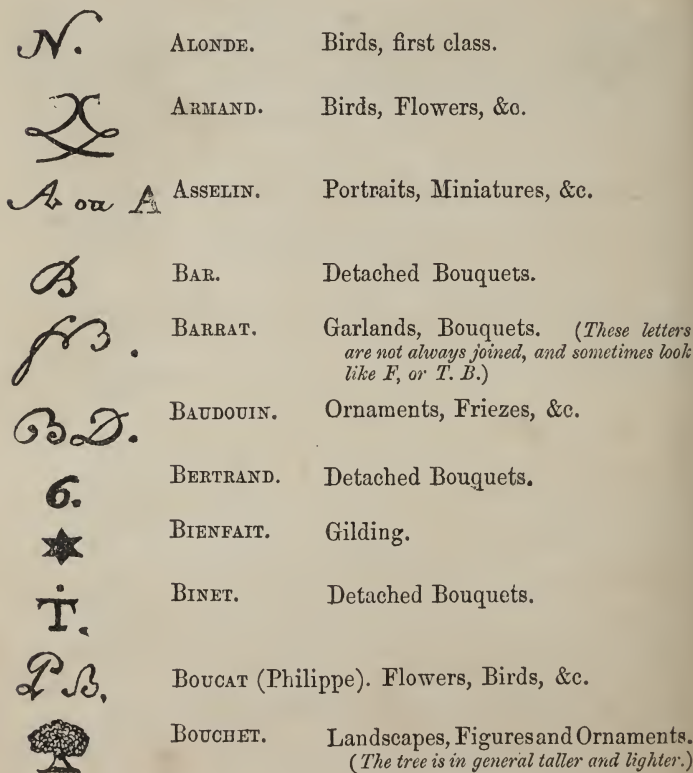 N. ALONDE. Birds, first class.
ARMAND. Birds, Flowers, &c.
A ou A ASSELIN. Portraits, Miniatures, &c.
B BAR. Detached Bouquets.
BARRAT. Garlands, Bouquets. (These letters
are not always joined, and sometimes look
like F, or T. B.)
BD. BAUDOUIN. Ornaments, Friezes, &c.
6. BERTRAND. Detached Bouquets.
BIENFAIT. Gilding.
T. BINET. Detached Bouquets.
PB. BOUCAT (Philippe). Flowers, Birds, &c.
BOUCHET. Landscapes, Figures and Ornaments.
(The tree is in general taller and lighter.)